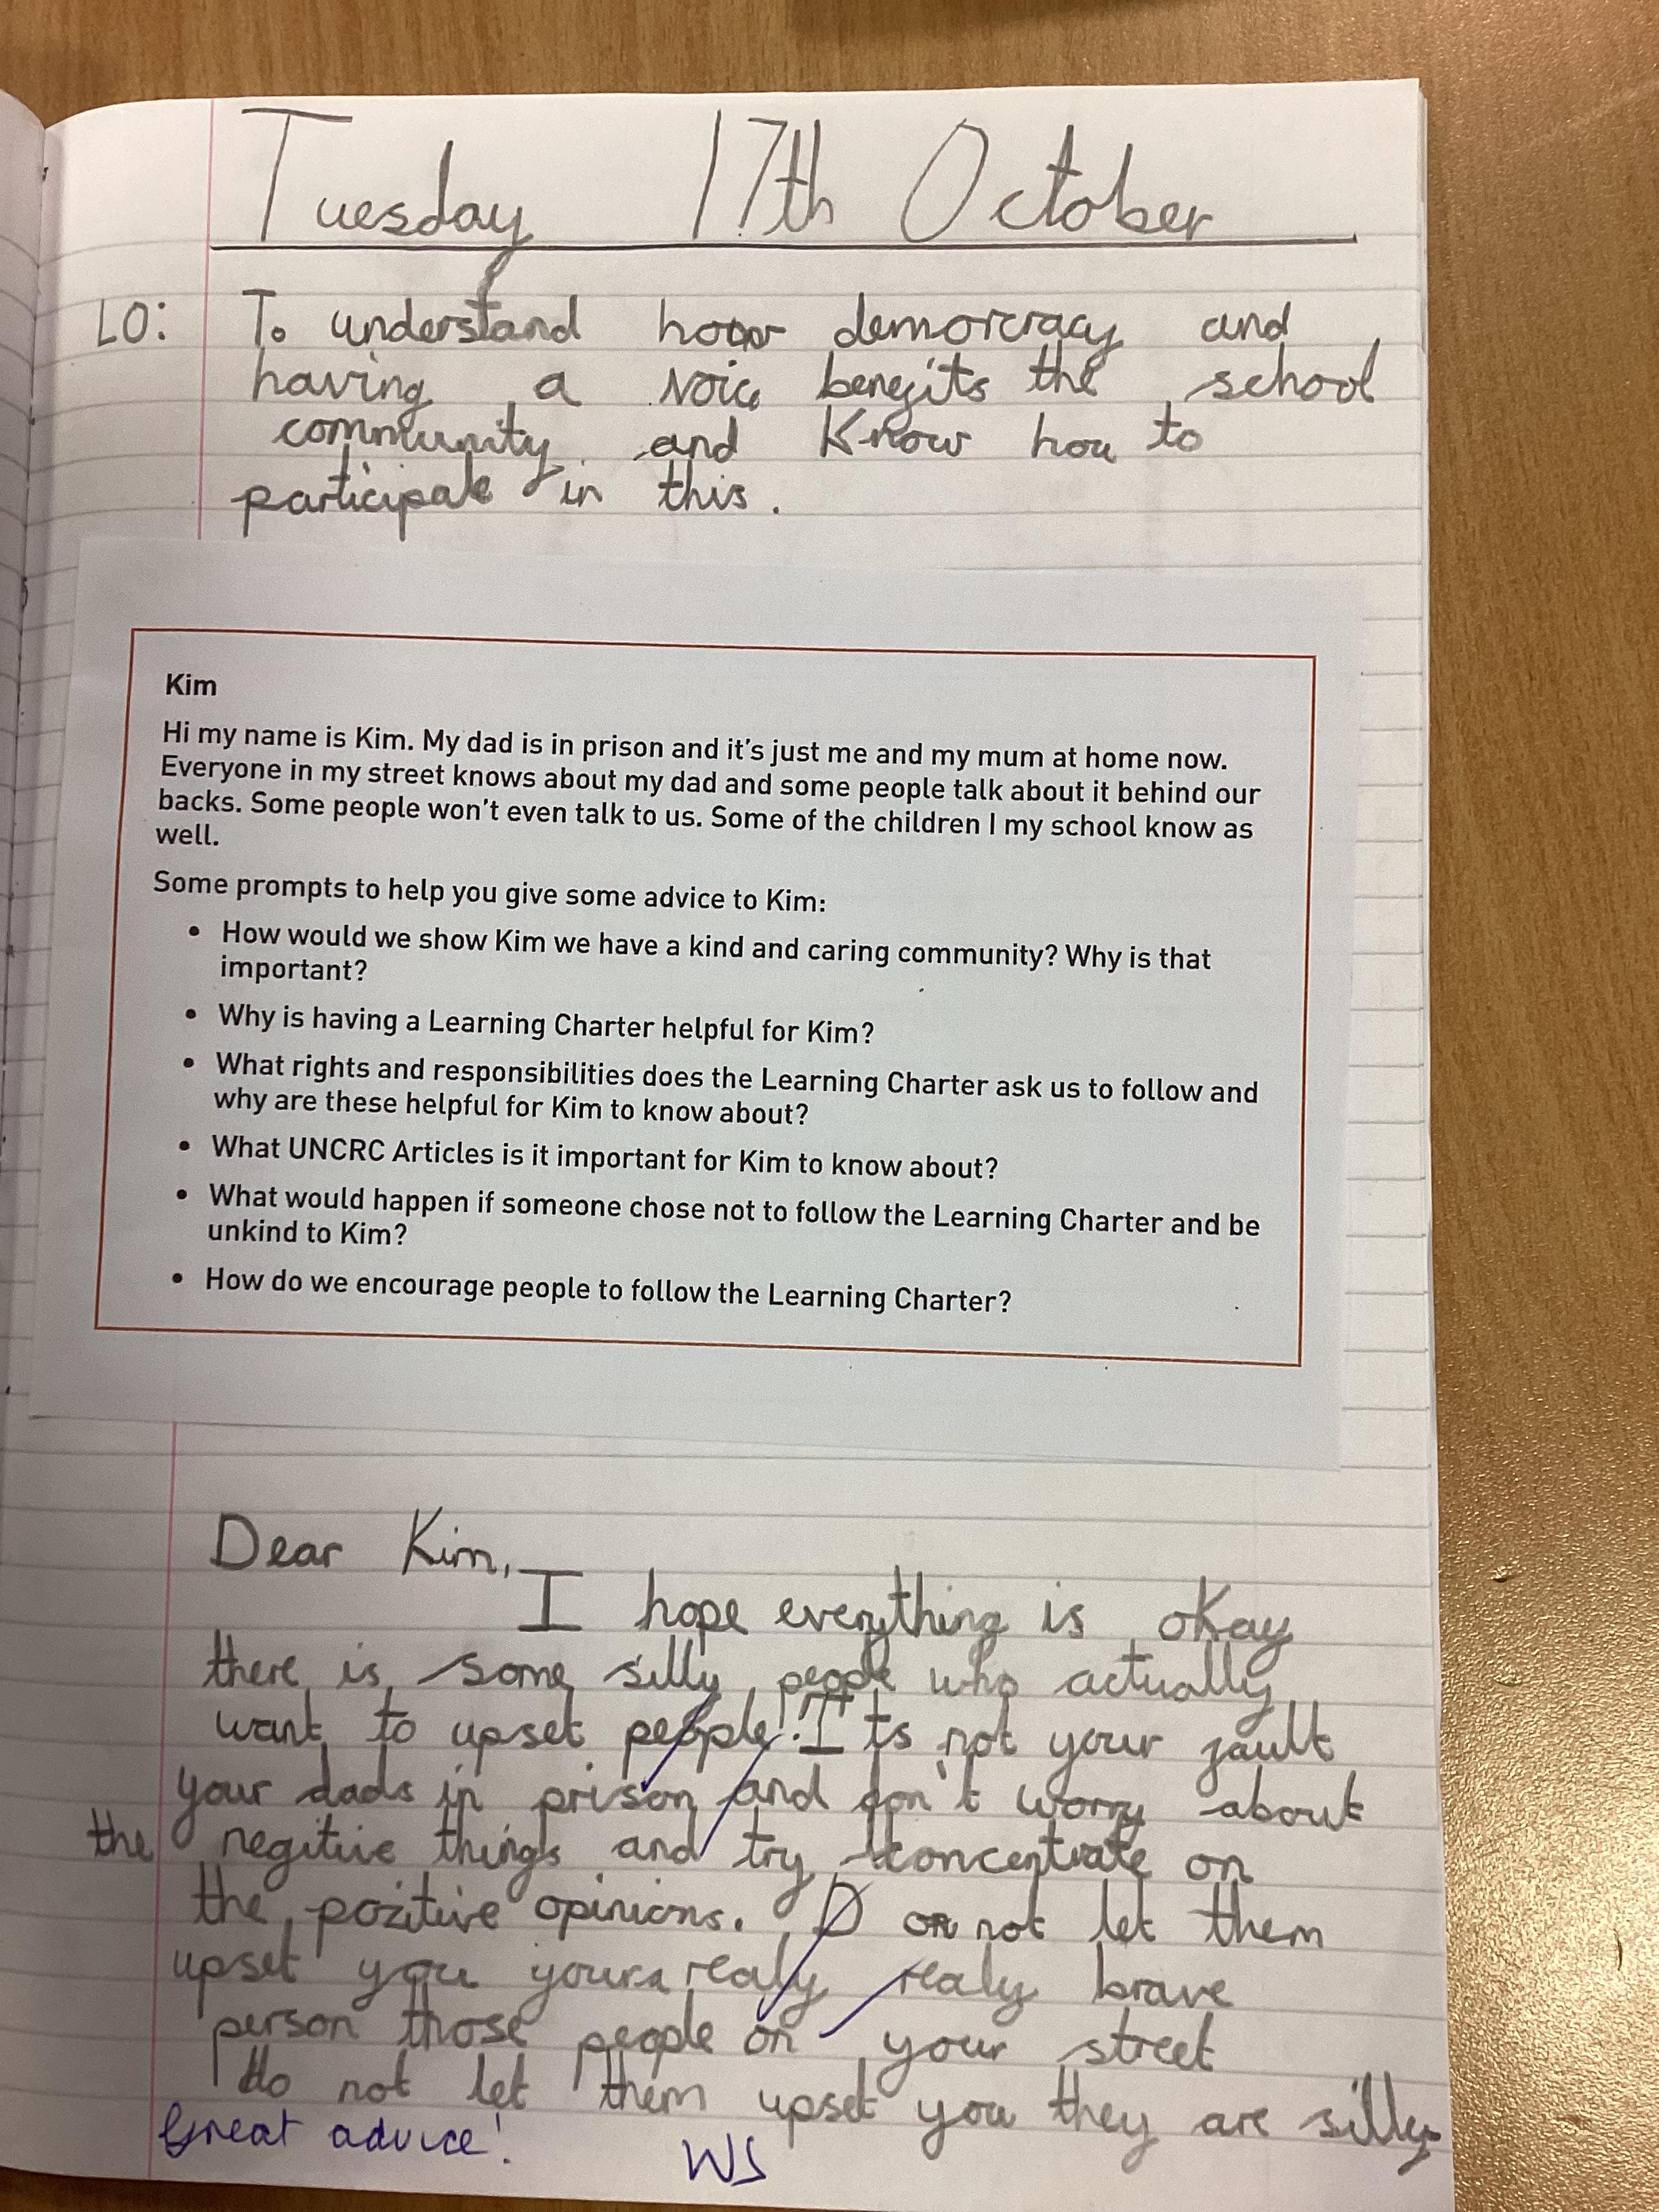 Tuesday 17th October
LO: To understand how demorcracy and
having a voice benefits the school
community and know how to
participate in this.
Kim
Hi my name is Kim. My dad is in prison and it's just me and my mum at home now.
Everyone in my street knows about my dad and some people talk about it behind our
backs. Some people won't even talk to us. Some of the children I my school know as
well.
Some prompts to help you give some advice to Kim:
• How would we show Kim we have a kind and caring community? Why is that
important?
• Why is having a Learning Charter helpful for Kim?
• What rights and responsibilities does the Learning Charter ask us to follow and
why are these helpful for Kim to know about?
• What UNCRC Articles is it important for Kim to know about?
• What would happen if someone chose not to follow the Learning Charter and be
unkind to Kim?
• How do we encourage people to follow the Learning Charter?
Dear Kim,
I hope everything is okay
there is some silly people who actually
want to upset people! Its not your fault
your dads in prison and don't worry about
the negitive things and try concentrate on
the pozitive opinions. Do not let them
upset you your a realy realy brave
person those people on your street
do not let them upset you they are silly
Great advice! WS